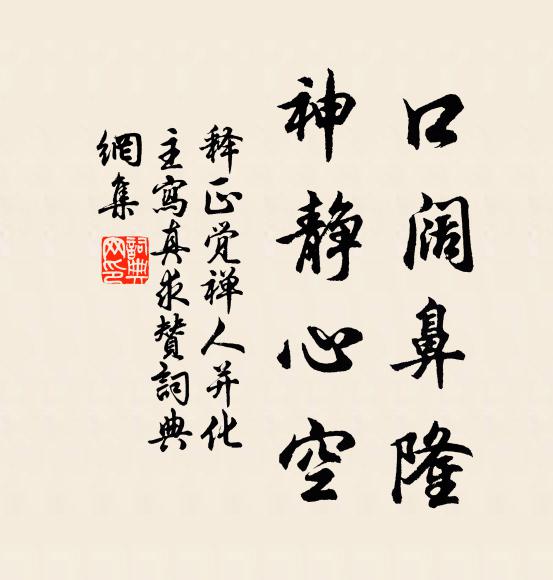 口阔鼻隆
神静心空
释正觉禅人并化
主寫真求赞詞典
網集
詞典
网印